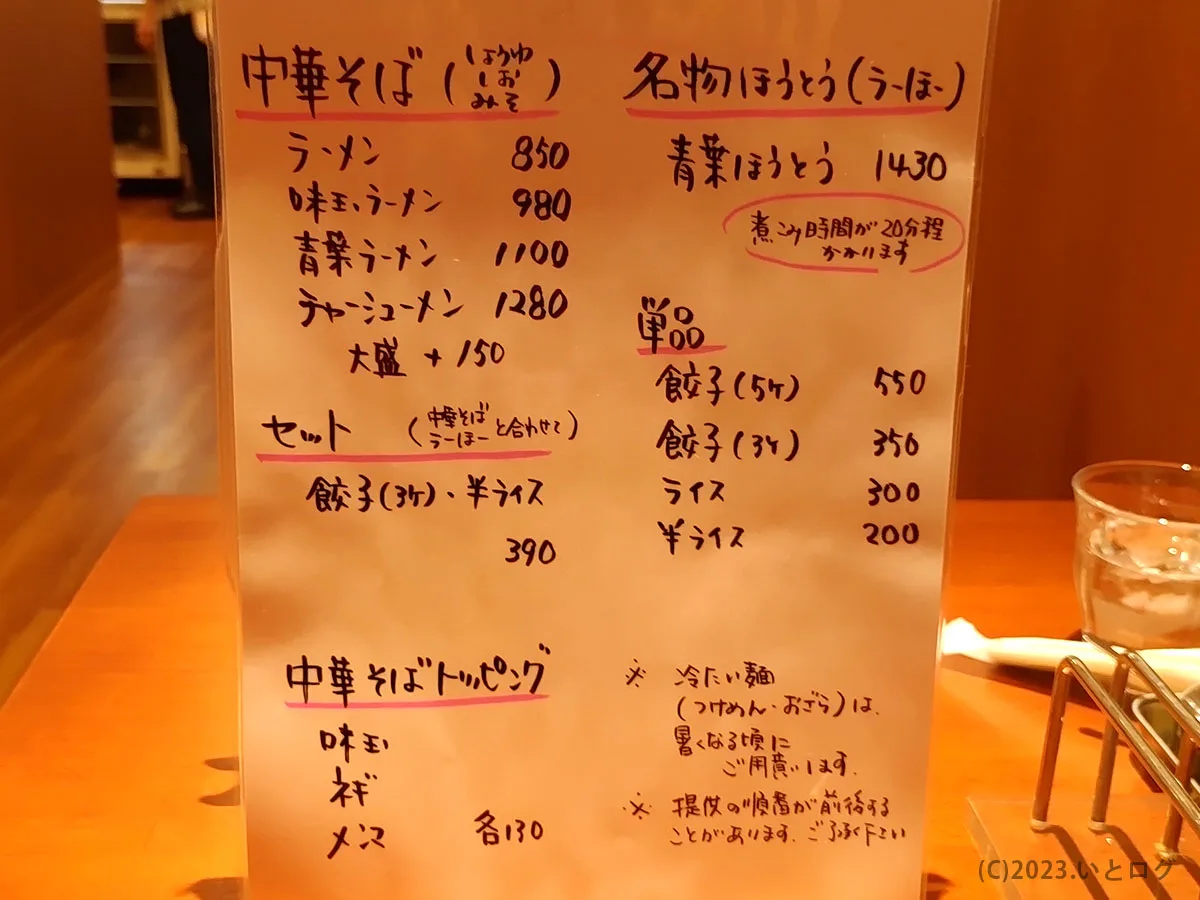 中華そば (しょうゆ しお みそ)
ラーメン 850
味玉ラーメン 980
青葉ラーメン 1100
チャーシューメン 1280
大盛 + 150
セット (中華そば らーほー と合わせて)
餃子(3ケ)・半ライス
390
中華そばトッピング
味玉
ネギ
メンマ 各130
名物ほうとう(らーほー)
青葉ほうとう 1430
煮こみ時間が20分程
かかります
単品
餃子(5ケ) 550
餃子(3ケ) 350
ライス 300
半ライス 200
※ 冷たい麺
(つけめん・おざら)は、
暑くなる頃に
ご用意します。
※ 提供の順番が前後する
ことがあります。ご了承下さい
(C)2023.いとログ